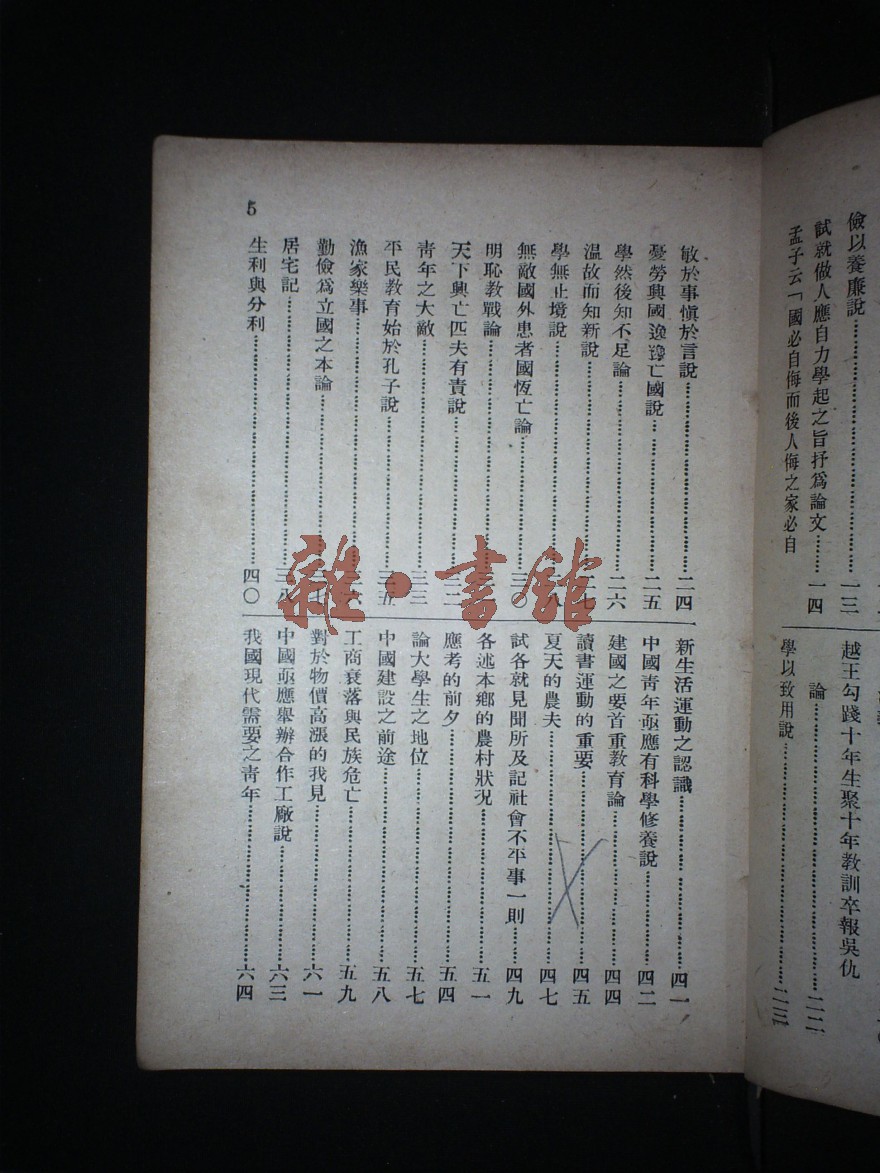 儉以養廉說……一三
試就做人應自力學起之旨抒爲論文……一四
孟子云「國必自侮而後人侮之家必自
越王勾踐十年生聚十年教訓卒報吳仇
論……二二
學以致用說……二三
敏於事愼於言說……二四
憂勞興國逸豫亡國說……二五
學然後知不足論……二六
温故而知新說……二七
學無止境說……
無敵國外患者國恆亡論……三〇
明恥教戰論……
天下興亡匹夫有責說……
靑年之大敵……三三
平民教育始於孔子說……三五
漁家樂事……
勤儉爲立國之本論……
居宅記……三八
生利與分利……四〇
新生活運動之認識……四一
中國靑年亟應有科學修養說……四二
建國之要首重教育論……四四
讀書運動的重要……四五
夏天的農夫……四七
試各就見聞所及記社會不平事一則……四九
各述本鄉的農村狀况……五一
應考的前夕……五四
論大學生之地位……五七
中國建設之前途……五八
工商衰落與民族危亡……五九
對於物價高漲的我見……六一
中國亟應舉辦合作工廠說……六三
我國現代需要之靑年……六四
5
雜·書館